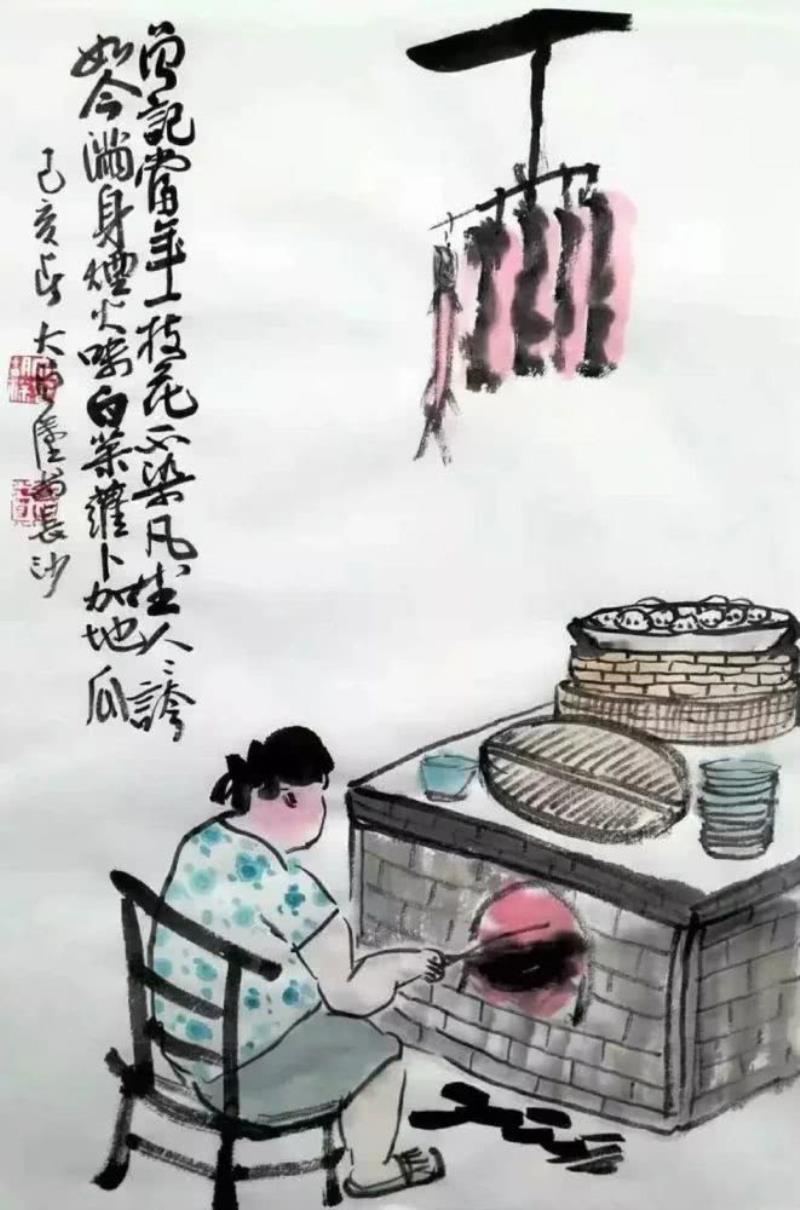 曾記當年一枝花不染凡塵人人誇
如今滿身煙火味白菜蘿卜加地瓜
己亥
長沙